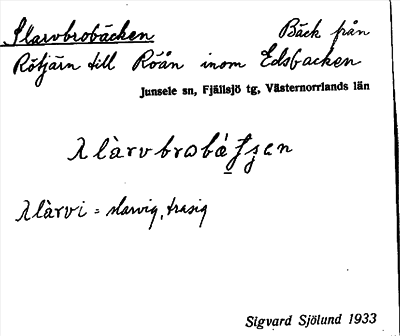 Slarvbrobäcken Bäck från
Rötjärn till Röån inom Edsbacken
Junsele sn, Fjällsjö tg, Västernorrlands län
slàrvi = slarvig, trasig
Sigvard Sjölund 1933